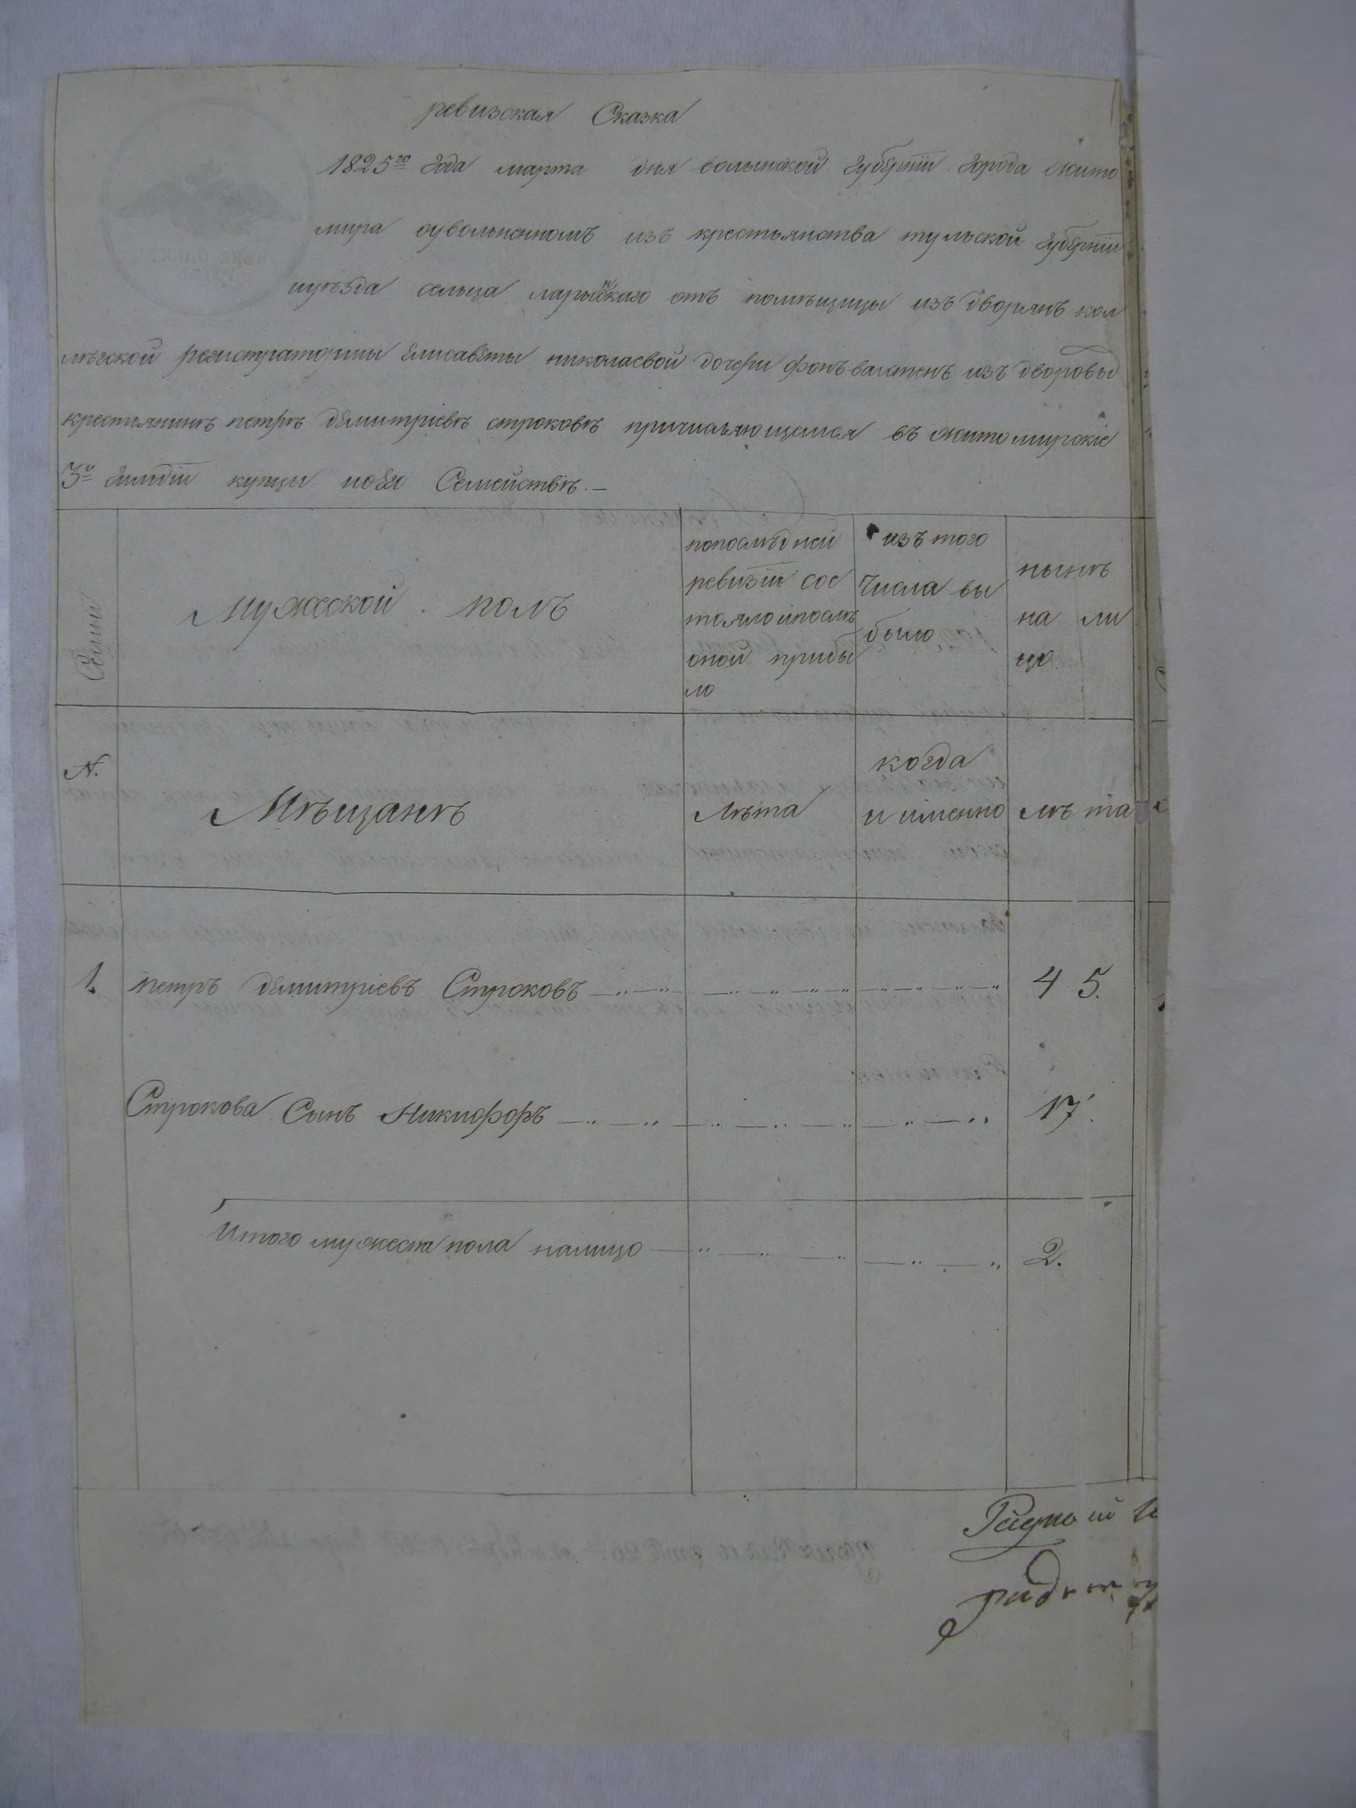 ревизская Сказка
1825го года марта дня волынской губернїи города жито
мира оувольненномъ изъ крестьянства тульской губернїи
иуезда сельца от помѣщицы изъ дворянъ кол
лѣгской регистраторши Елисаветы николаевой дочери фонъ изъ дворовых
крестьянинѣ петрѣ демитріевѣ строковѣ причисляющемся въ житомирскіе
3й гилдїи купцы иобего Семействѣ.—
Семьи
Мужеской полъ
попослѣдней
ревизїи сос
тояло ипослѣ
оной прибы
ло
изъ того
числа вы
было
нынѣ
на ли
цо
N.
Мѣщанѣ
Лѣта
когда
и именно
лѣта
1. петръ демитріевъ Строковъ 45.
Строкова Сынъ Никифоръ 17.
Итого мужеска пола налицо 2.